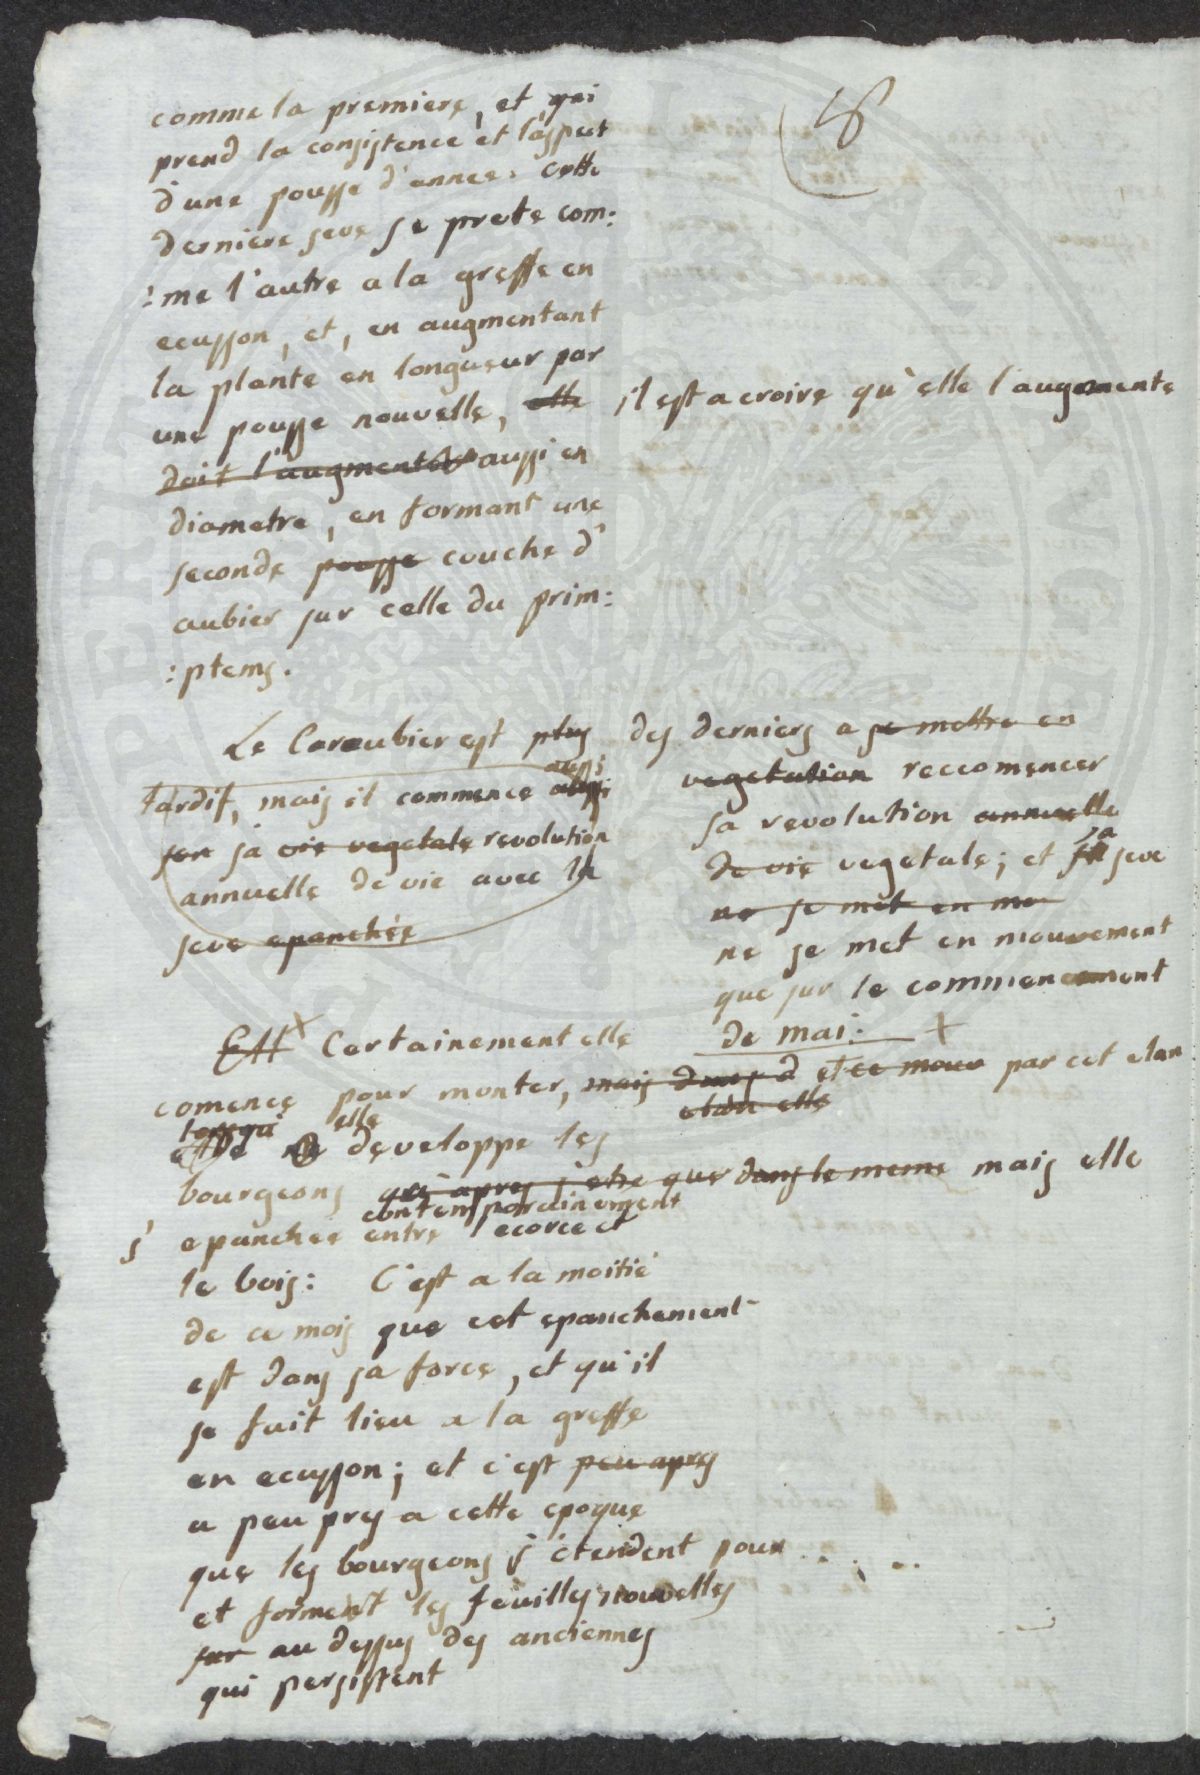 comme la premiere, et qui
prend la consistence et l'aspect
d'une pousse d'annee. Cette
derniere seve se prete com:
:me l'autre a la greffe en
ecusson, et, en augmentant
la plante en longueur par
une pousse nouvelle, elle il est a croire qu'elle l'augmente
doit l'augmenter aussi en
diametre, en formant une
seconde pousse couche d'
aubier sur celle du prim:
:ptems.
Le Caroubier est plus
tardif, mais il commence aussi
son sa vie vegetale revolution
annuelle de vie avec la
seve epanchée
des derniers a se mettre en
vegetation reccomencer
sa revolution annuelle
de vie vegetale; et sa seve
ne se met en mo
ne se met en mouvement
que sur le commencement
de mai: X
Ell X Certainement elle
comence pour monter, mais dans d et ce mouv par cet elan
elan elle
lorsqu' elle
developpe les
bourgeons qu'apres s'etre que dans le meme mais elle
contemporainement
s' epanchee entre l'ecorce et
le bois: C'est a la moitié
de ce mois que cet epanchement
est dans sa force, et qu'il
se fait lieu a la greffe
en ecusson; et c'est peu apres
a peu pres a cette epoque
que les bourgeons s'étendent pour . . . ..
et forment les feuilles nouvelles
sur au dessus des anciennes
qui persistent